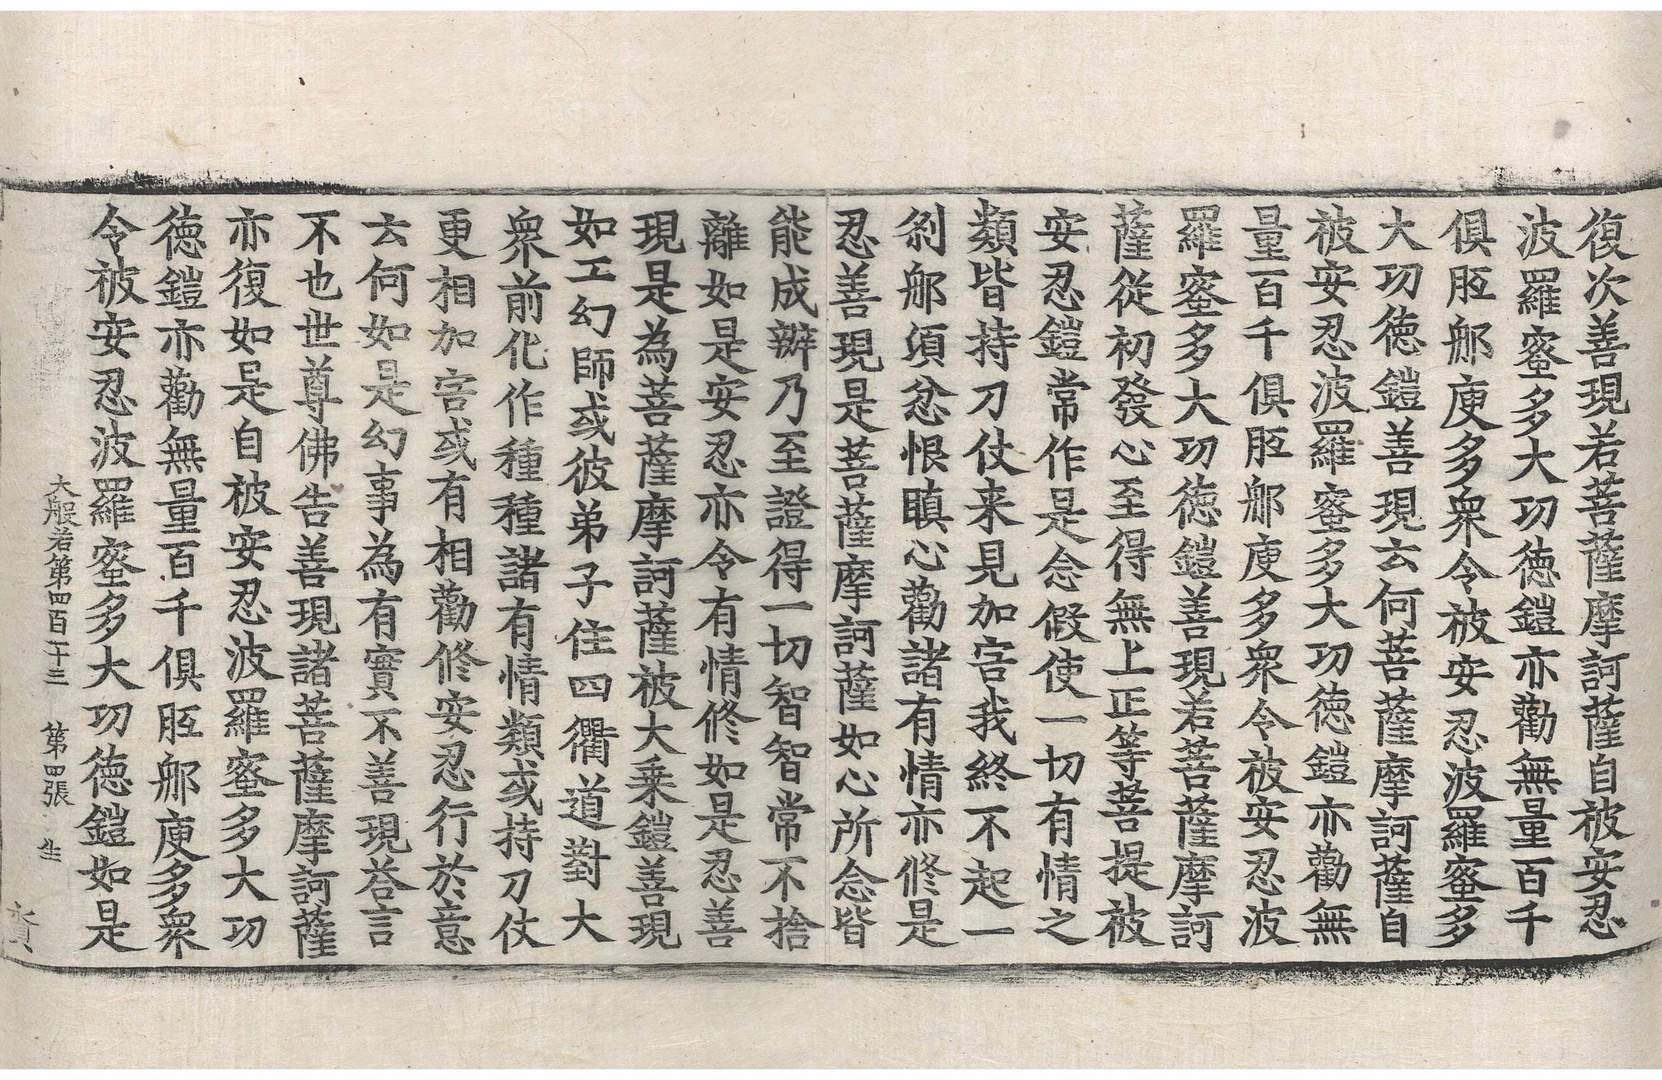 復次善現若菩薩摩訶薩自被安忍
波羅蜜多大功徳鎧亦勸無量百千
俱胝那庾多衆令被安忍波羅蜜多
大功徳鎧善現云何菩薩摩訶薩自
被安忍波羅蜜多大功徳鎧亦勸無
量百千俱胝那庾多衆令被安忍波
羅蜜多大功徳鎧善現若菩薩摩訶
薩從初發心至得無上正等菩提被
安忍鎧常作是念假使一切有情之
類皆持刀仗来見加害我終不起一
剎那須忿恨瞋心勸諸有情亦修是
忍善現是菩薩摩訶薩如心所念皆
能成辦乃至證得一切智智常不捨
離如是安忍亦令有情修如是忍善
現是為菩薩摩訶薩被大乗鎧善現
如工幻師或彼弟子住四衢道對大
衆前化作種種諸有情類或持刀仗
更相加害或有相勸修安忍行於意
云何如是幻事為有實不善現荅言
不也世尊佛告善現諸菩薩摩訶薩
亦復如是自被安忍波羅蜜多大功
徳鎧亦勸無量百千俱胝那庾多衆
令被安忍波羅蜜多大功徳鎧如是
大般若第四百一十三 第四張